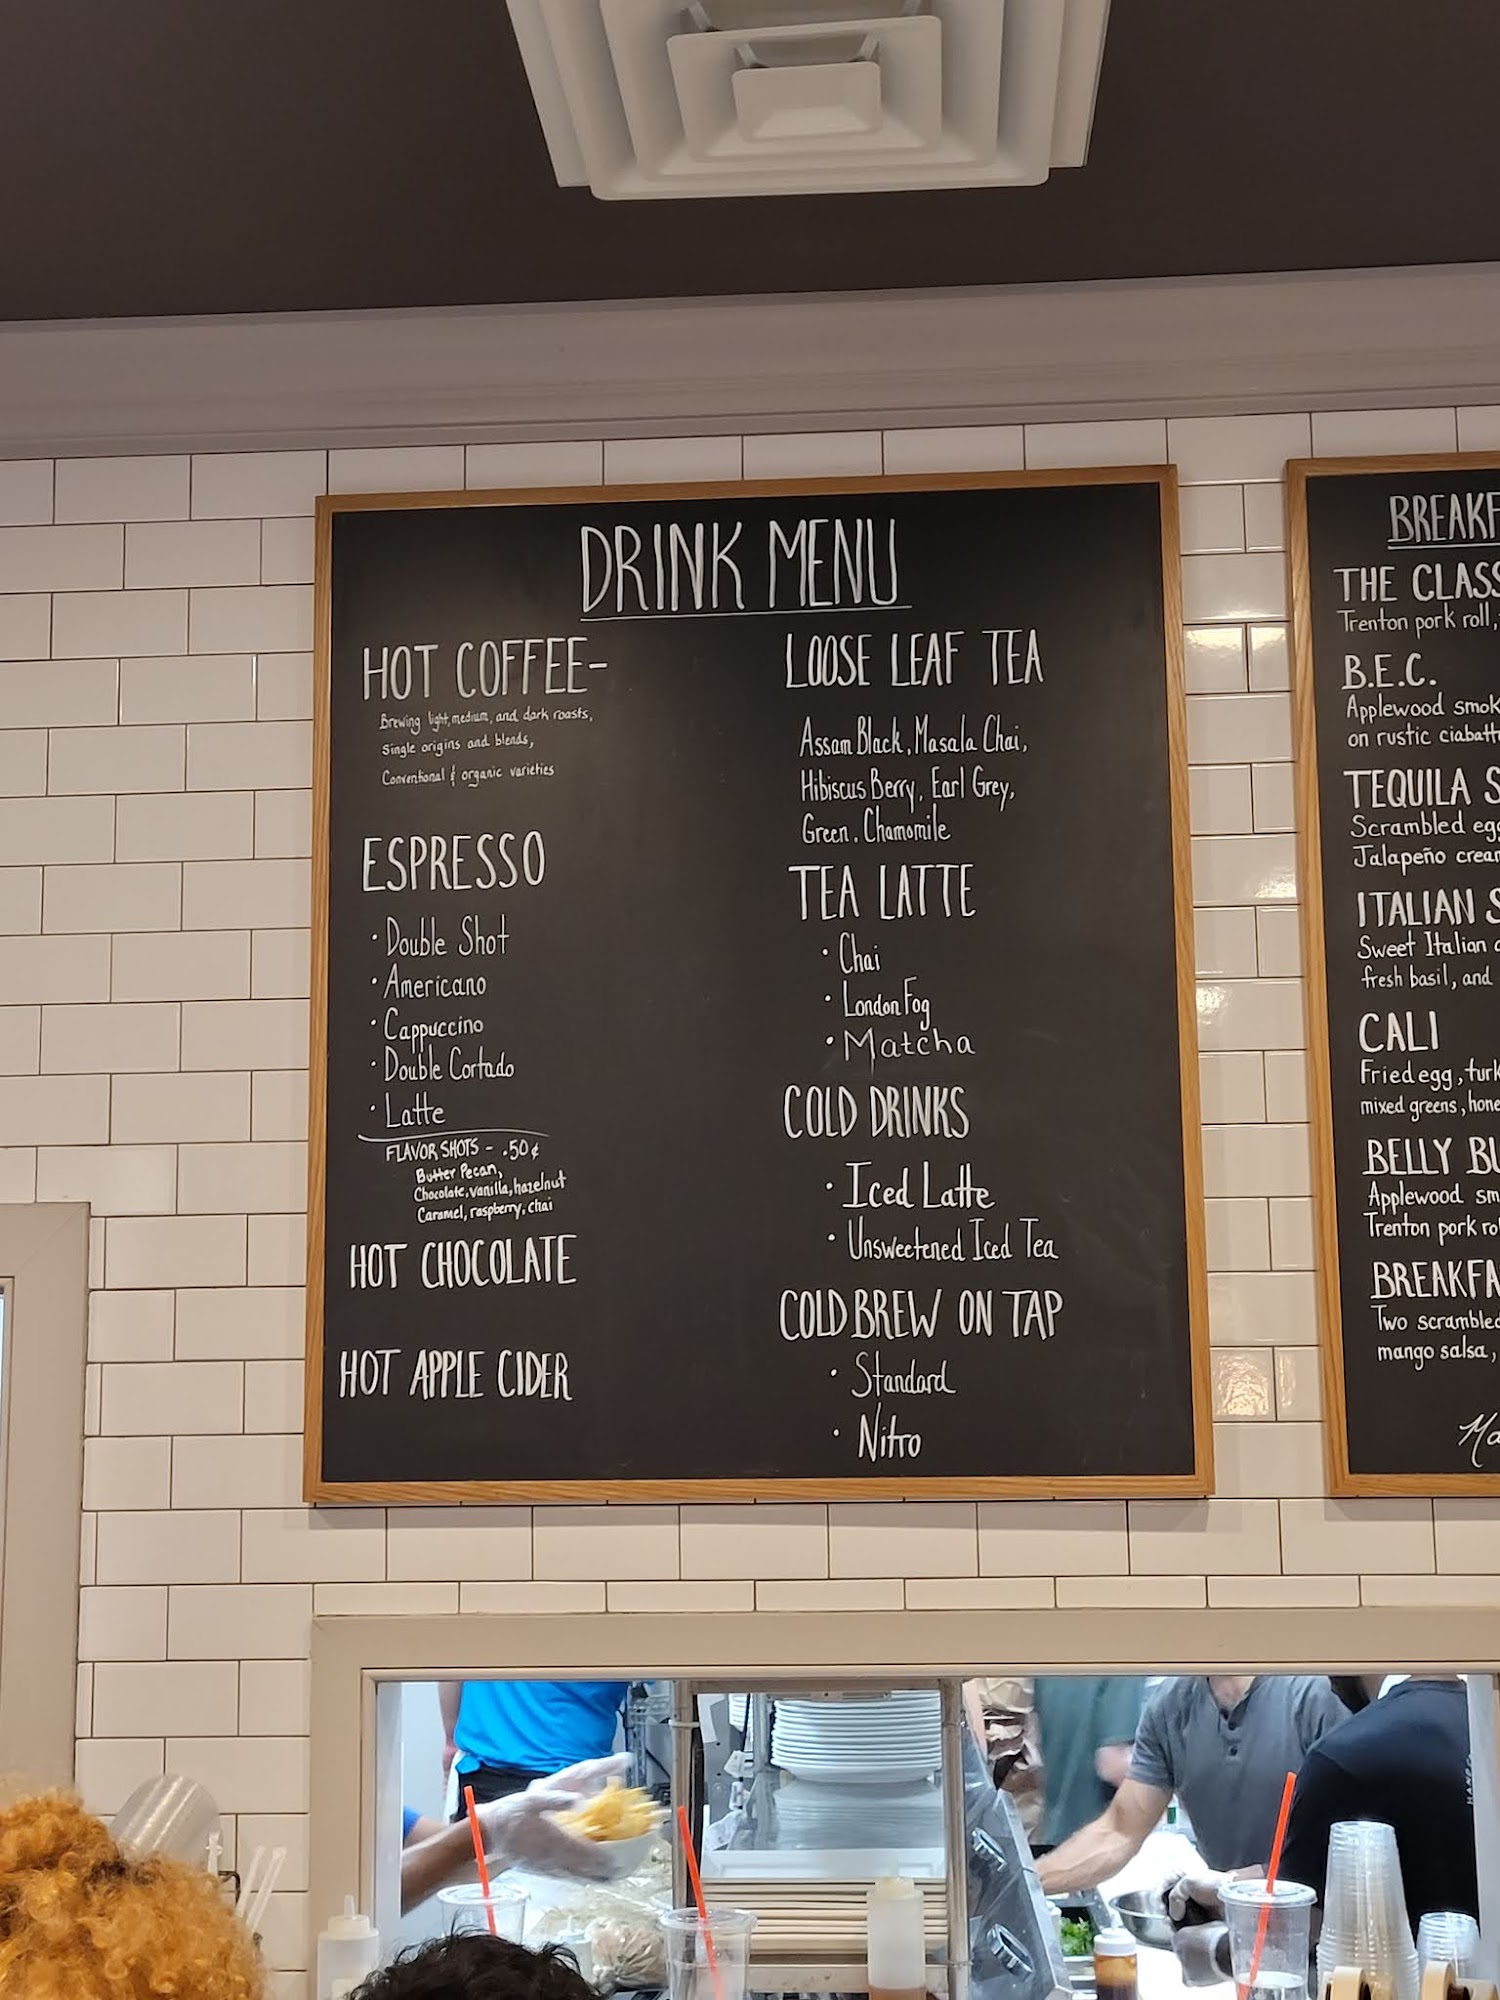 DRINK MENU
HOT COFFEE-
Brewing light, medium, and dark roasts,
Single origins and blends,
Conventional & organic varieties
ESPRESSO
· Double Shot
· Americano
· Cappuccino
· Double Cortado
· Latte
FLAVOR SHOTS - .50¢
Butter Pecan,
Chocolate, vanilla, hazelnut
Caramel, raspberry, chai
HOT CHOCOLATE
HOT APPLE CIDER
LOOSE LEAF TEA
Assam Black, Masala Chai,
Hibiscus Berry, Earl Grey,
Green, Chamomile
TEA LATTE
· Chai
· London Fog
· Matcha
COLD DRINKS
· Iced Latte
· Unsweetened Iced Tea
COLD BREW ON TAP
· Standard
· Nitro
BREAKF
THE CLASS
Trenton pork roll,
B.E.C.
Applewood smok
on rustic ciabatt
TEQUILA S
Scrambled egg
Jalapeño crea
ITALIAN S
Sweet Italian
fresh basil, and
CALI
Fried egg, turk
mixed greens, hone
BELLY BU
Applewood sm
Trenton pork ro
BREAKFA
Two scrambled
mango salsa,
Ma